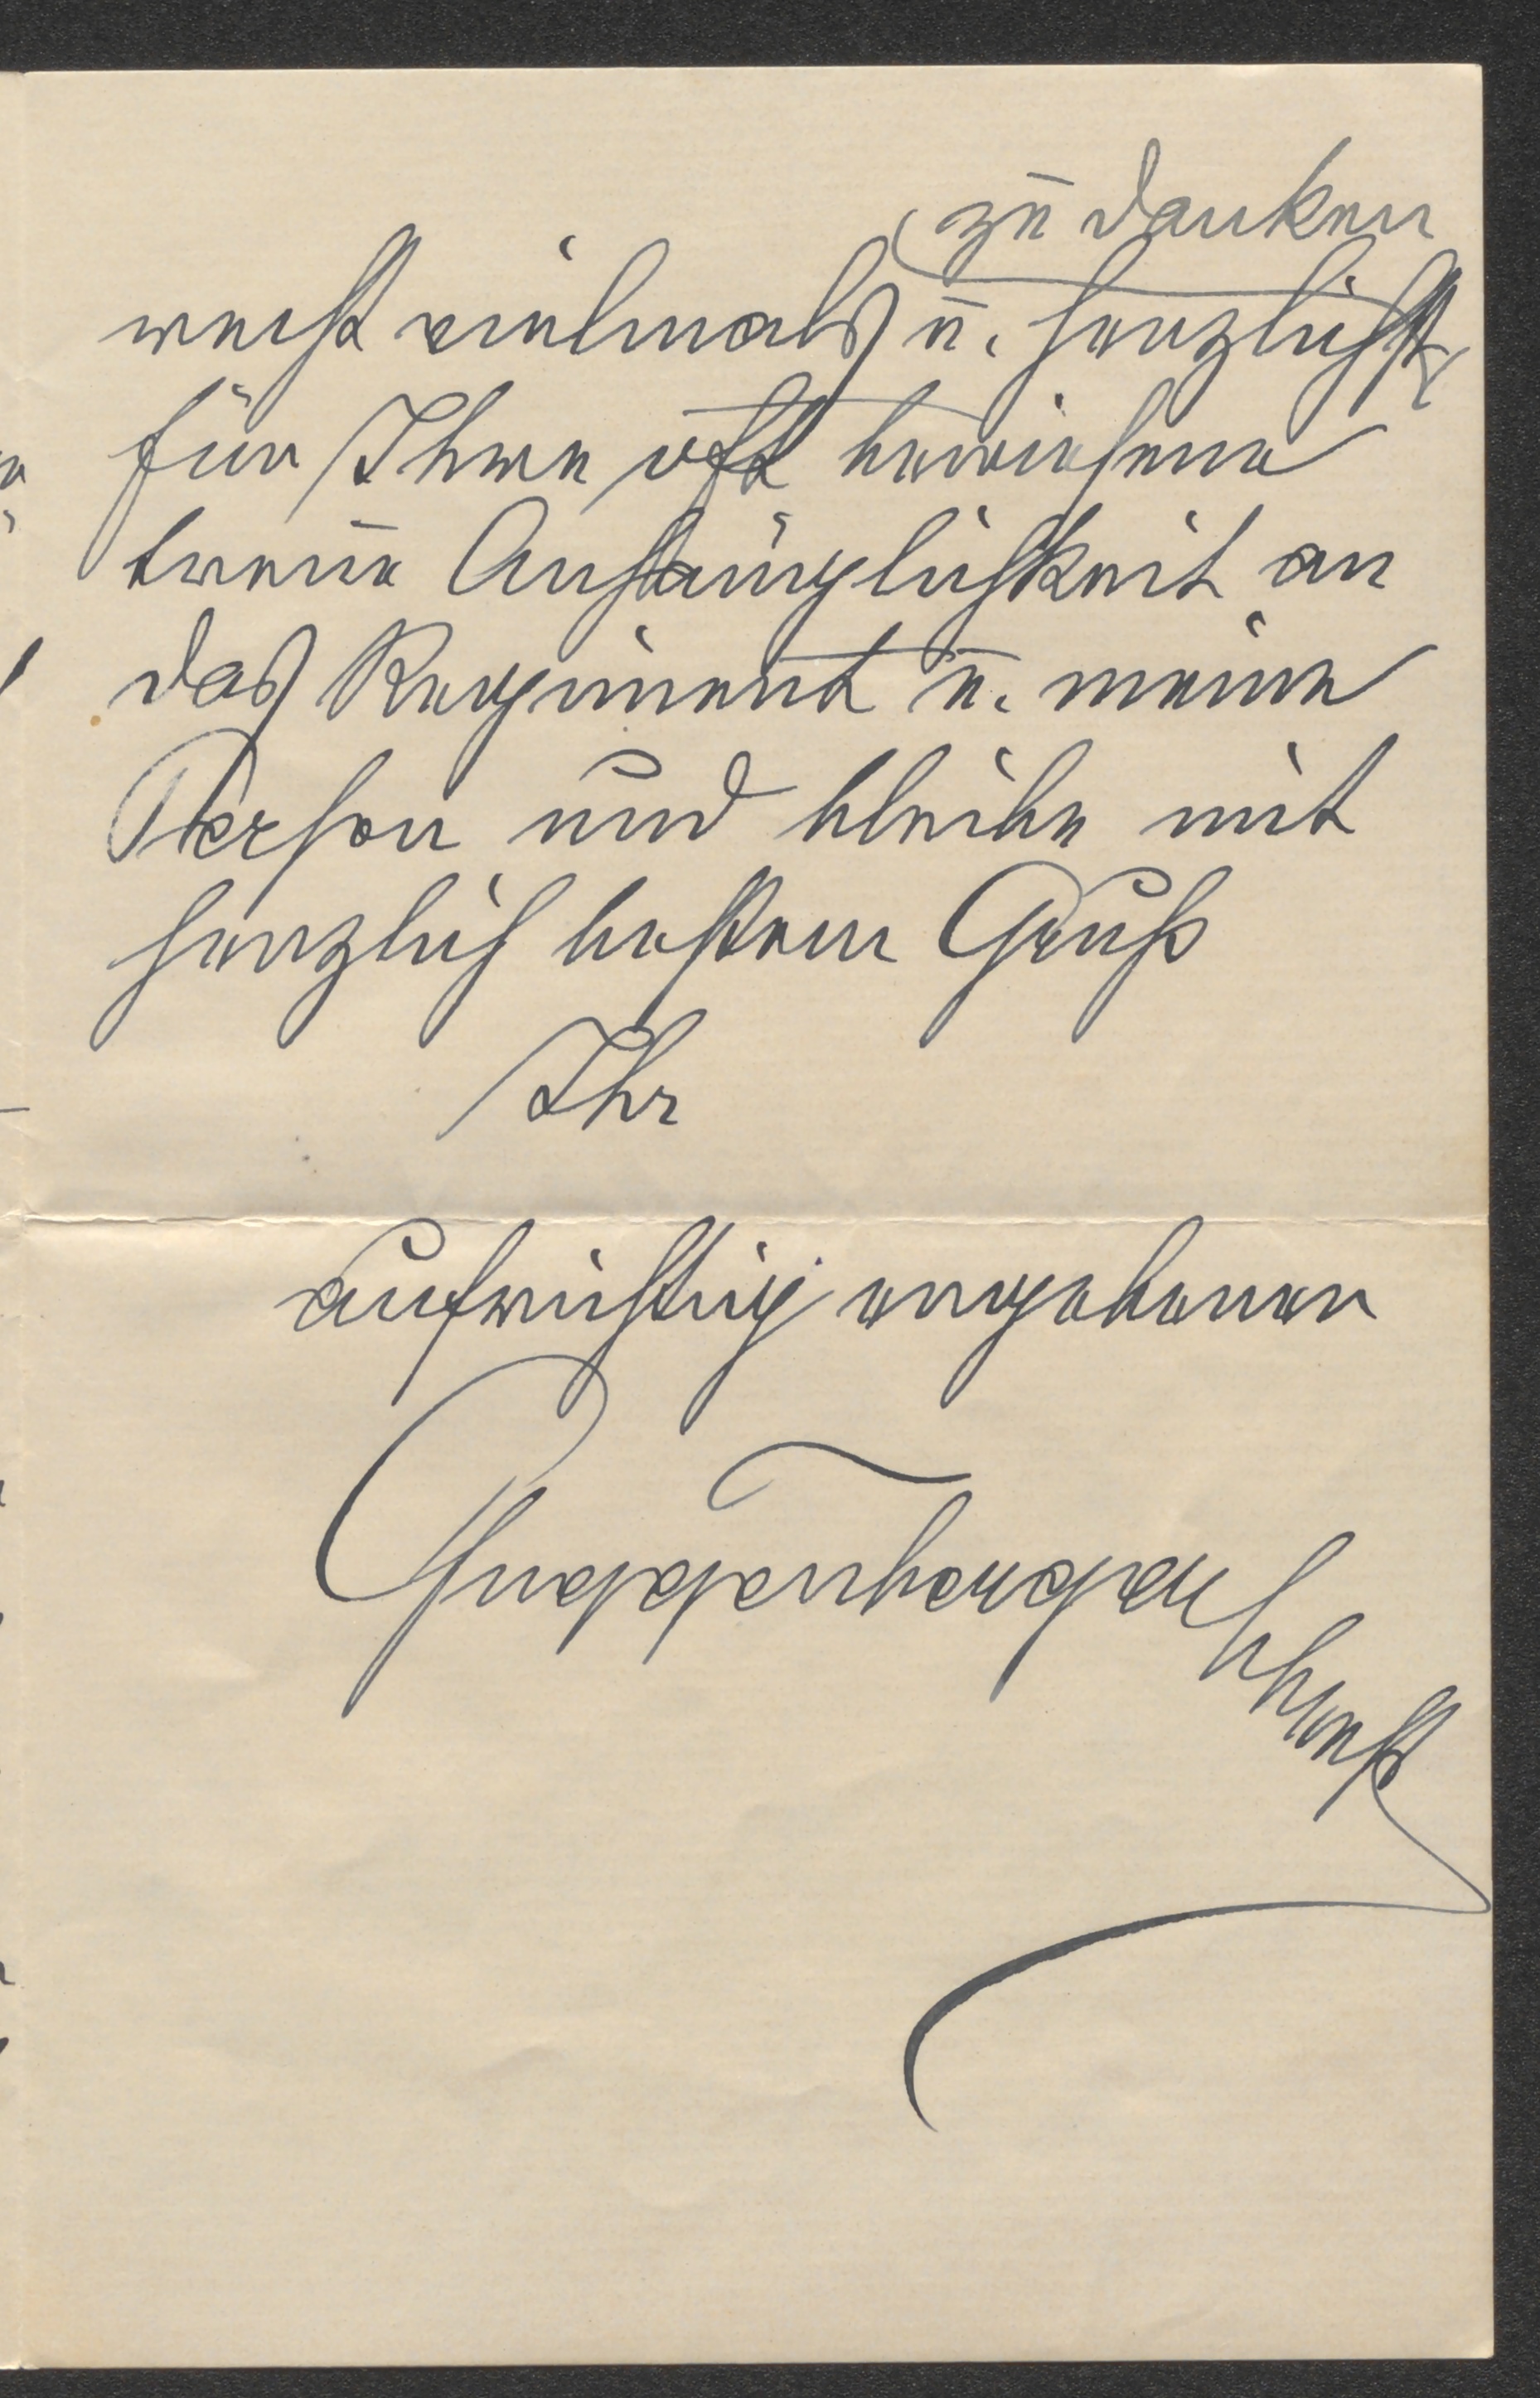 zu danken
vielmals u. herzlichst
für Ihre oft bewiesene
treue Anhänglichkeit an
das Regiment u. meine
Person und bleibe mit
herzlich bestem Gruß
Ihr
aufrichtig ergebener